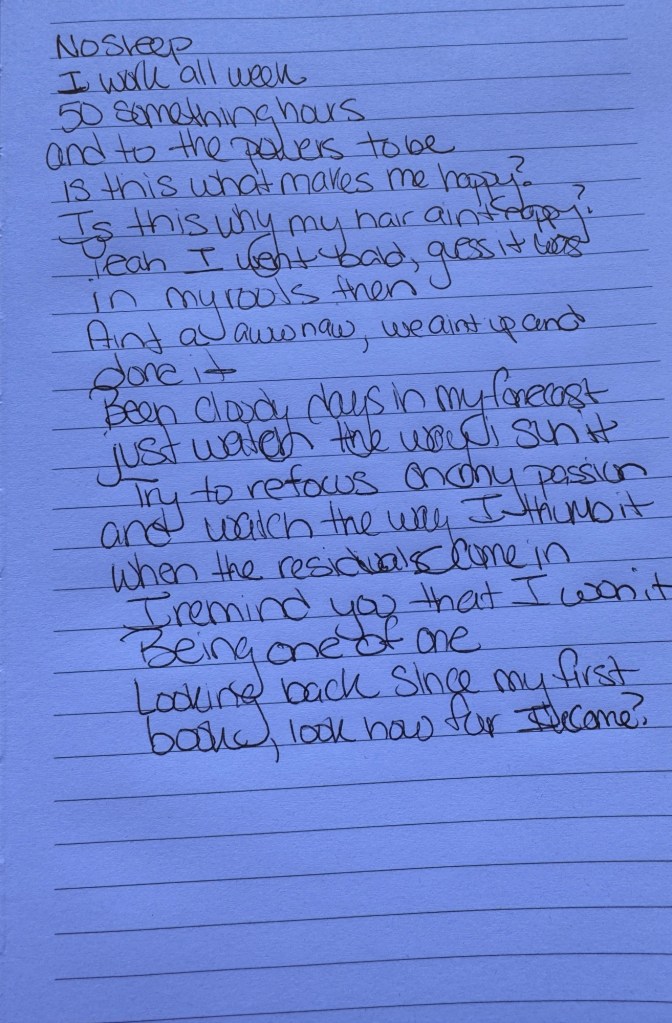 No sleep
I work all week
50 something hours
and to the powers to be
is this what makes me happy?
Is this why my hair aint nappy?
Yeah I went bald, guess it was
in my roots then
Aint a aww naw, we aint up and
done it
Been cloudy days in my forecast
just watch the way I sun it
Try to refocus on my passion
and watch the way I thumb it
when the residuals come in
I remind you that I won it
Being one of one
Looking back since my first
book, look how far I come?